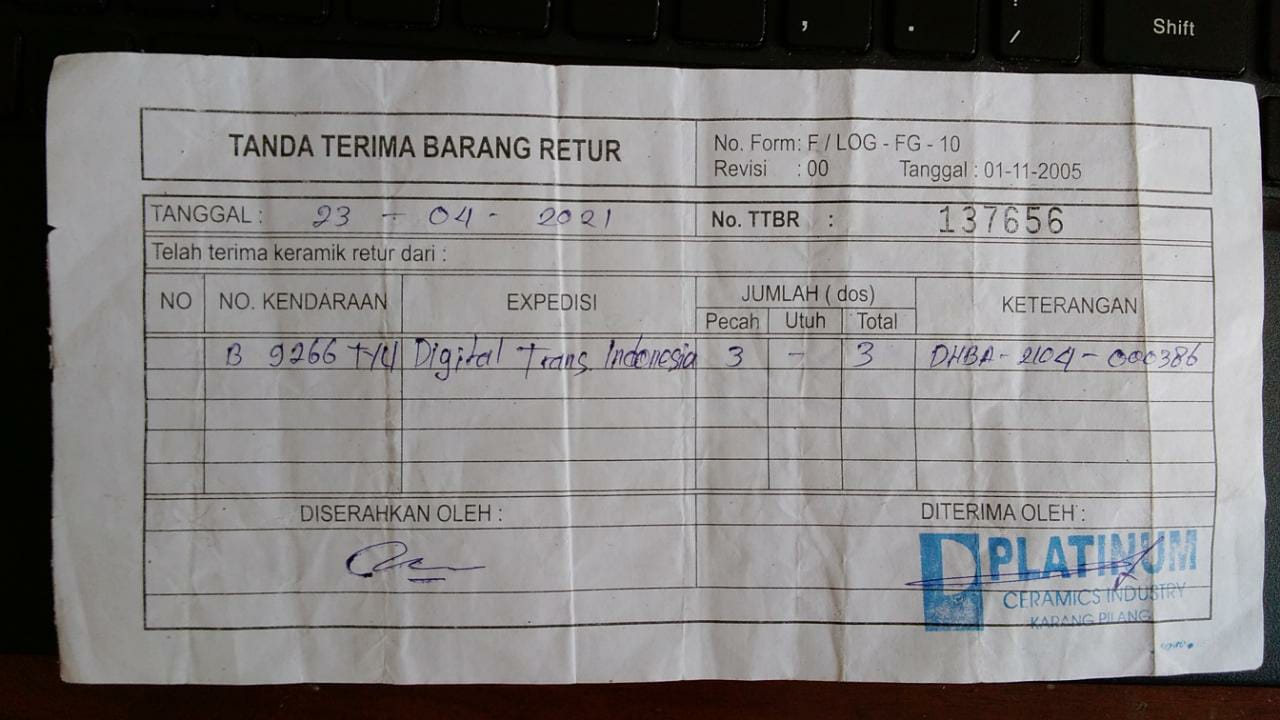 ,
.
/
Shift
TANDA TERIMA BARANG RETUR
No. Form: F / LOG - FG - 10
Revisi : 00 Tanggal : 01-11-2005
TANGGAL : 23 - 04 - 2021
No. TTBR : 137656
Telah terima keramik retur dari :
NO NO. KENDARAAN EXPEDISI JUMLAH ( dos) KETERANGAN
Pecah Utuh Total
B 9266 Digital Trans. Indonesia 3 - 3 DHBA - 2104 - 000386
DISERAHKAN OLEH : DITERIMA OLEH :
PLATINUM
CERAMICS INDUSTRY
KARANG PILANG